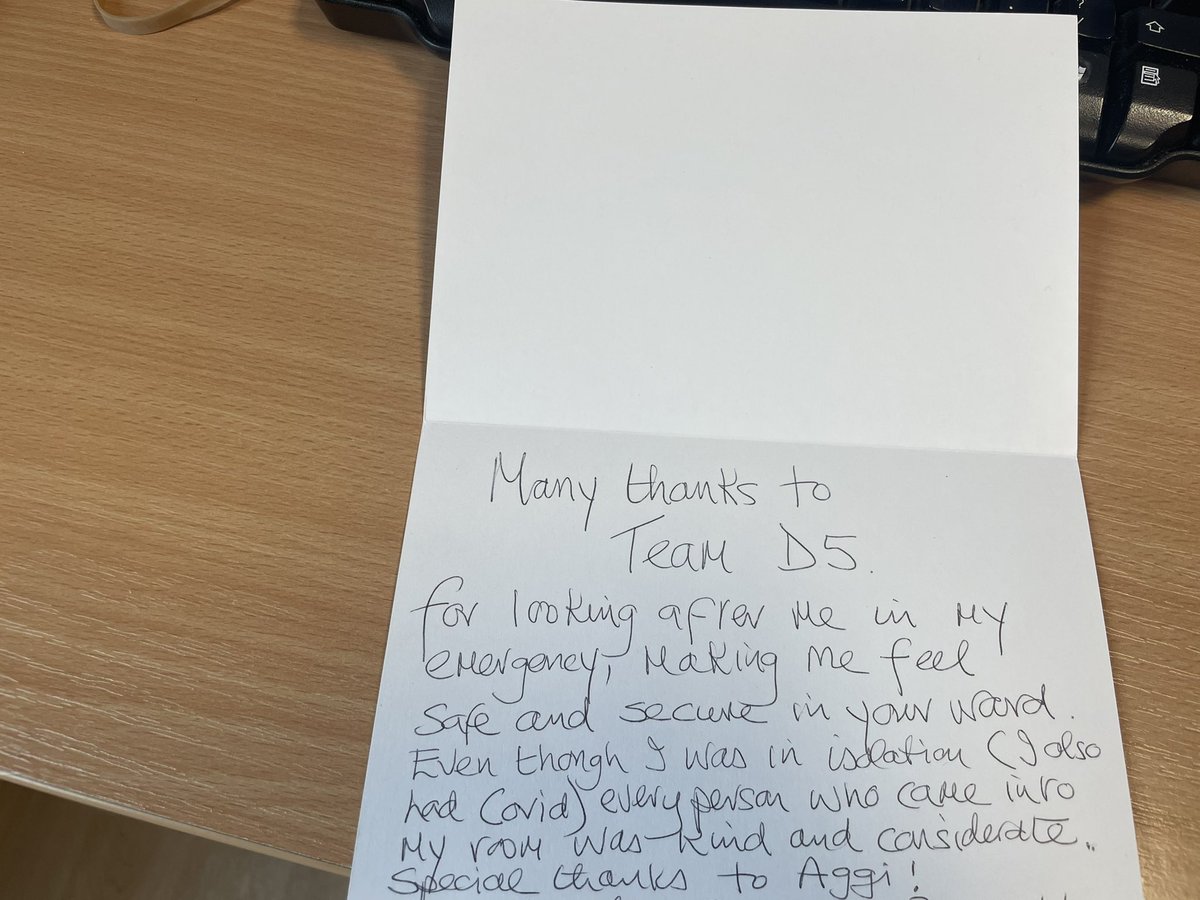 Many thanks to
Team D5.
for looking after me in my
emergency, making me feel
safe and secure in your ward.
Even though I was in isolation (I also
had Covid) every person who came into
my room was kind and considerate..
Special thanks to Aggi!